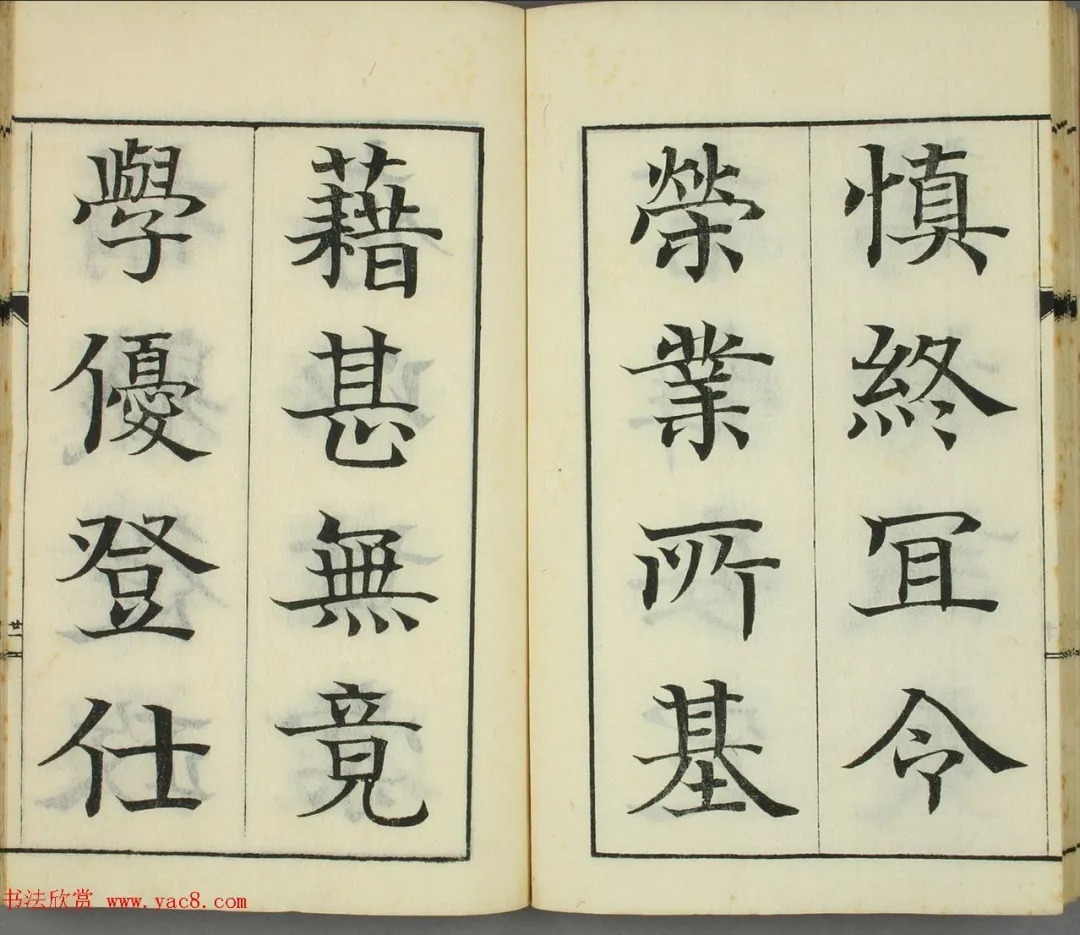 慎終冝令
榮業所基
藉甚無竟
學優登仕
廿
书法欣赏 www.yac8.com